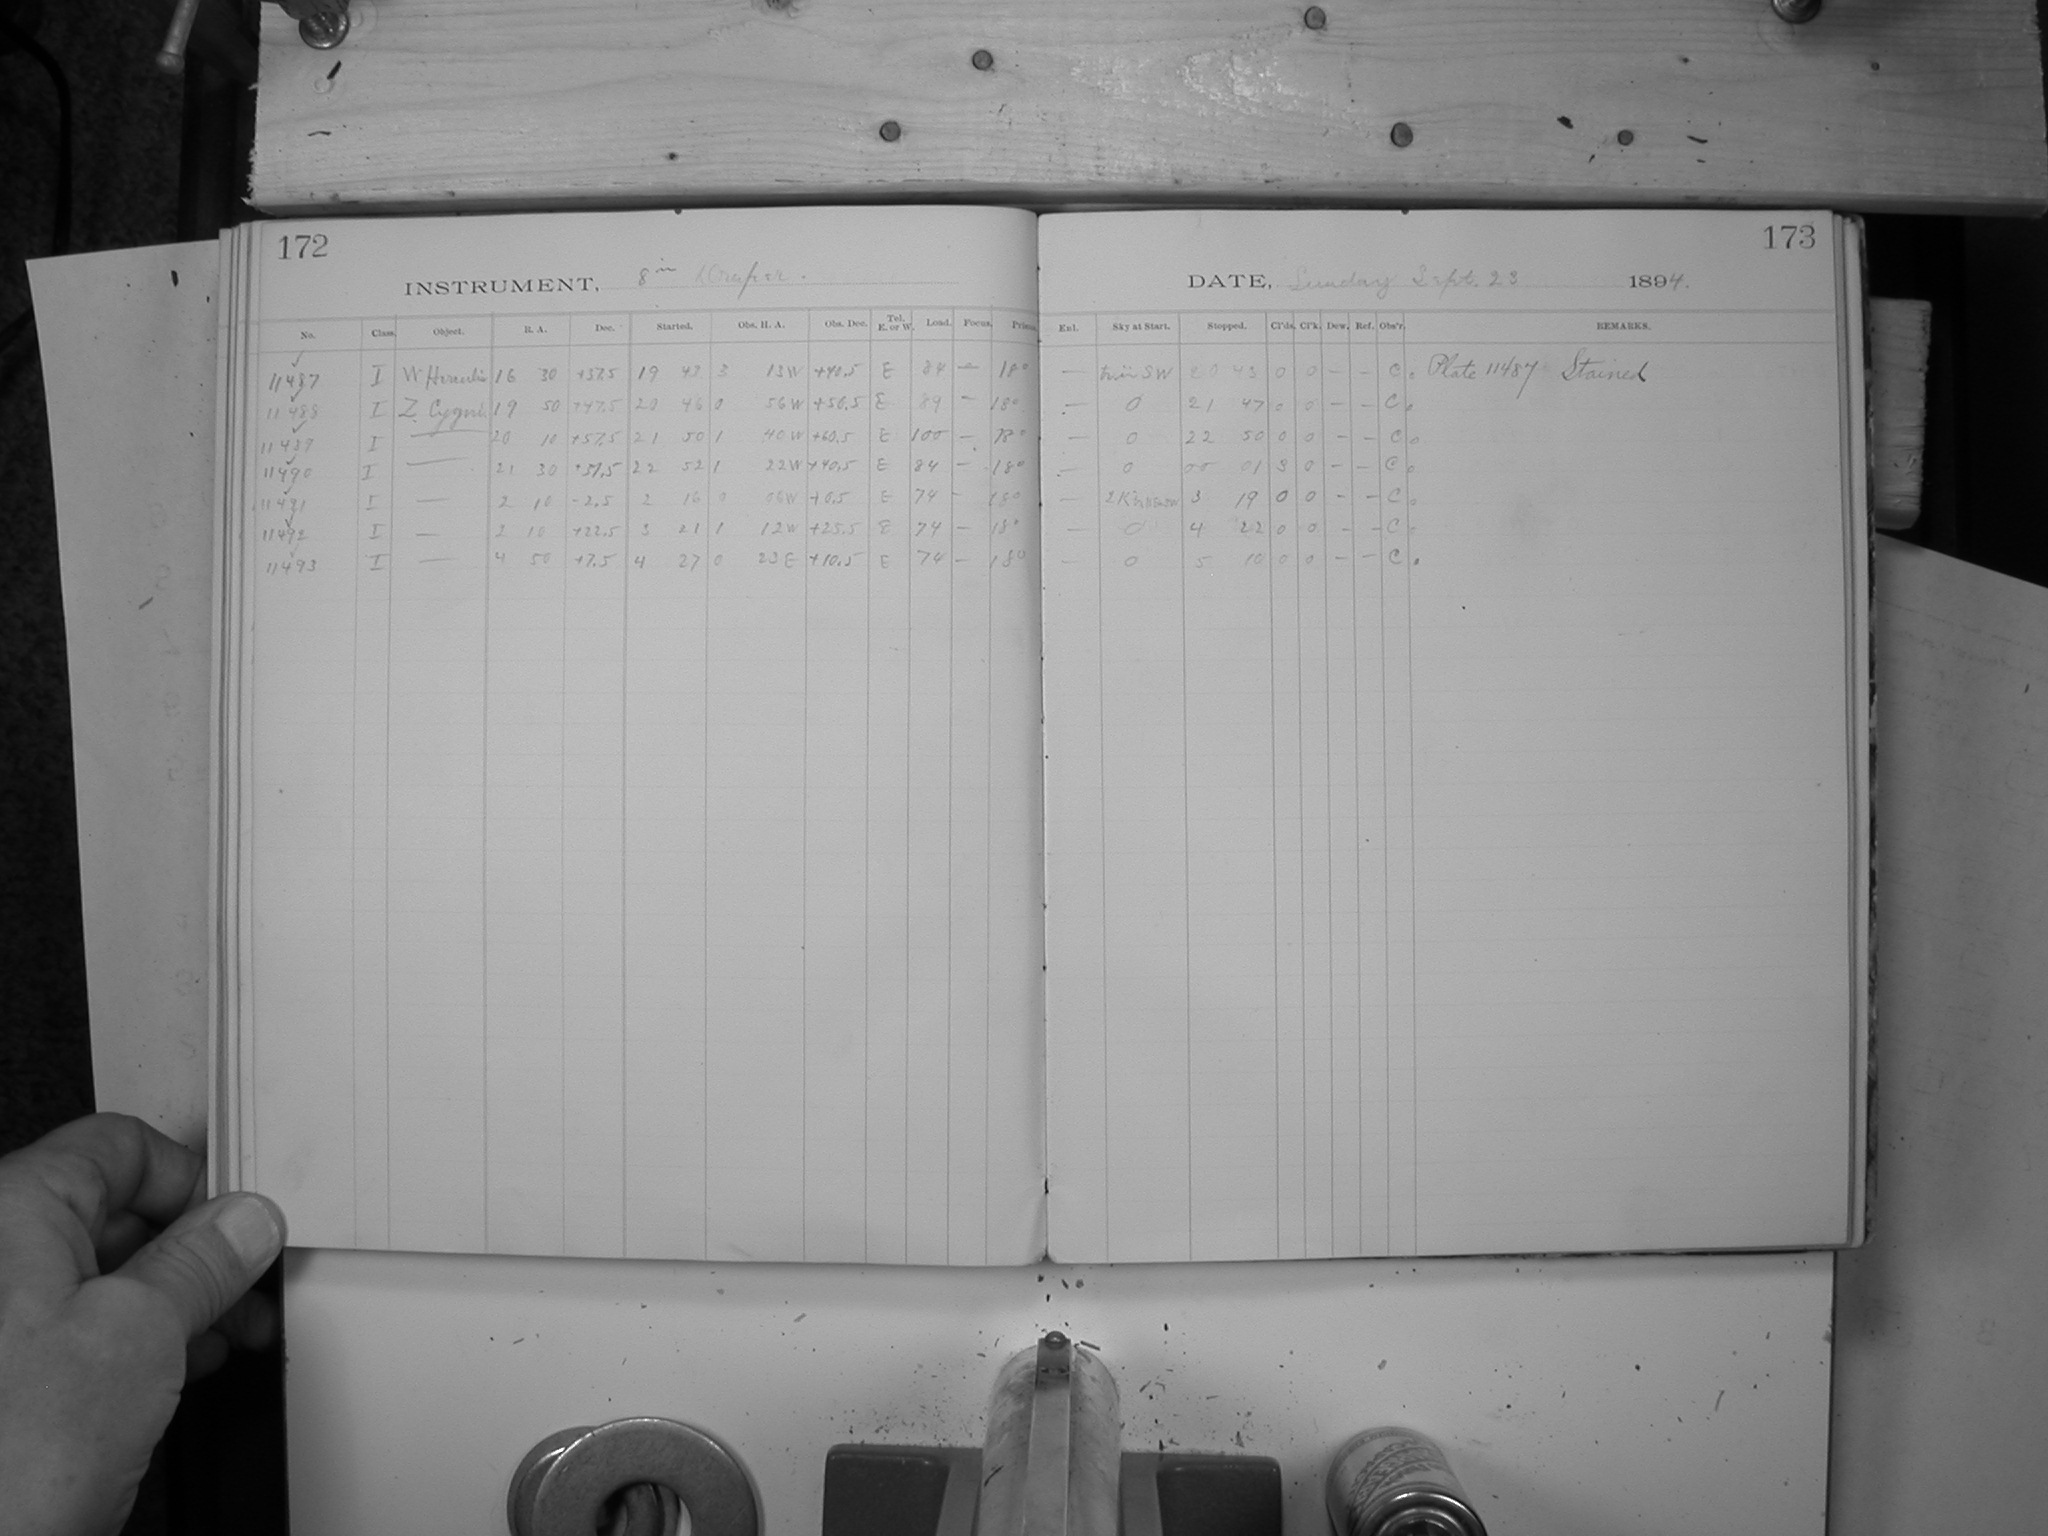 172
INSTRUMENT, 8 in Draper.
No. Class. Object. R. A. Dec. Started. Obs. H. A. Obs. Dec. Tel. E. or W. Load. Focus. Prism.
11487 I W Herculis 16 30 +37.5 19 43 3 13W +40.5 E 84 — 18°
11488 I Z Cygni 19 50 +47.5 20 46 0 56W +50.5 E 89 — 18°
11489 I — 20 10 +57.5 21 50 1 40W +60.5 E 100 — 18°
11490 I — 21 30 +37.5 22 52 1 22W +40.5 E 84 — 18°
11491 I — 2 10 -2.5 2 16 0 06W +0.5 E 74 — 18°
11492 I — 2 10 +22.5 3 21 1 12W +25.5 E 74 — 18°
11493 I — 4 50 +7.5 4 27 0 23E +10.5 E 74 — 18°
173
DATE, Sunday Sept. 23 1894.
Enl. Sky at Start. Stopped. Cl'ds. Cl'k. Dew. Ref. Obs'r. REMARKS.
— SW 20 43 0 0 — — C. Plate 11487 Stained
— 0 21 47 0 0 — — C.
— 0 22 50 0 0 — — C.
— 0 00 01 3 0 — — C.
— 3 19 0 0 — — C.
— 0 4 22 0 0 — — C.
— 0 5 10 0 0 — — C.